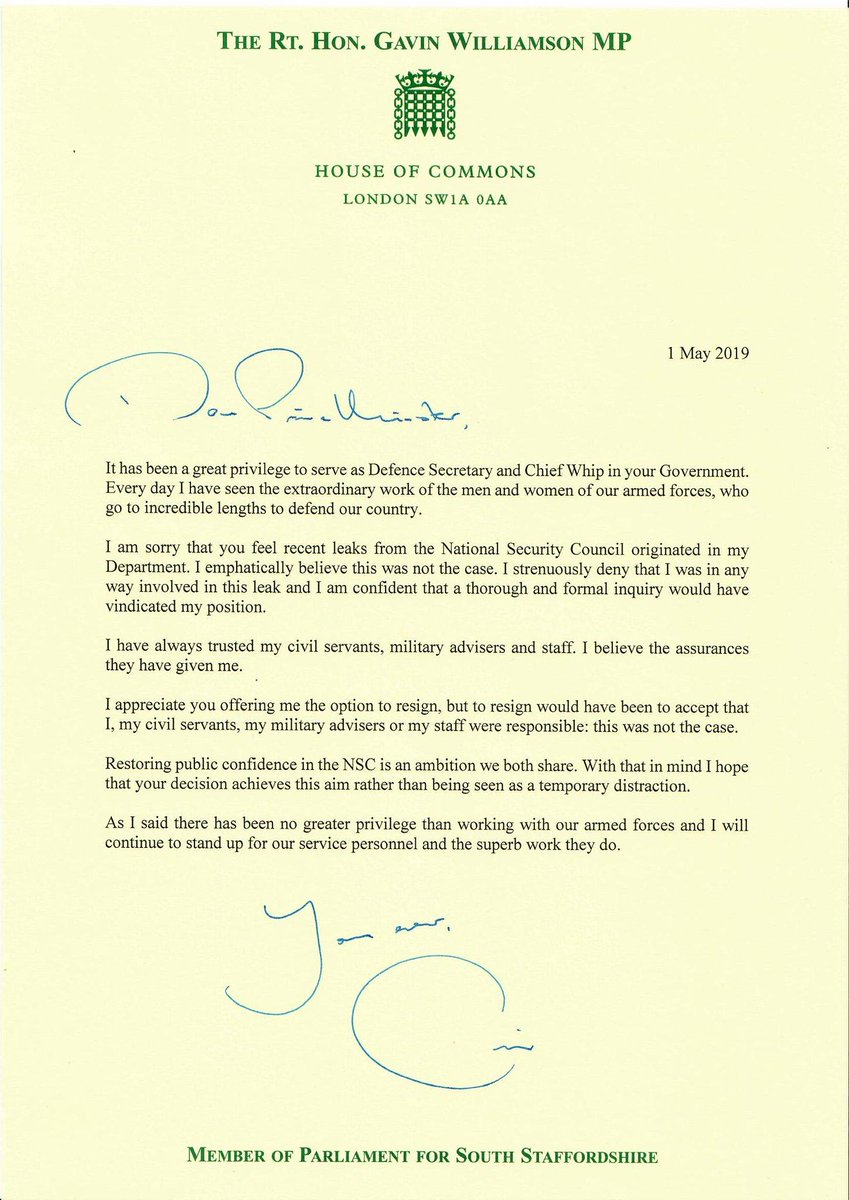 THE RT. HON. GAVIN WILLIAMSON MP
HOUSE OF COMMONS
LONDON SW1A 0AA
1 May 2019
Dear Prime Minister,
It has been a great privilege to serve as Defence Secretary and Chief Whip in your Government.
Every day I have seen the extraordinary work of the men and women of our armed forces, who
go to incredible lengths to defend our country.
I am sorry that you feel recent leaks from the National Security Council originated in my
Department. I emphatically believe this was not the case. I strenuously deny that I was in any
way involved in this leak and I am confident that a thorough and formal inquiry would have
vindicated my position.
I have always trusted my civil servants, military advisers and staff. I believe the assurances
they have given me.
I appreciate you offering me the option to resign, but to resign would have been to accept that
I, my civil servants, my military advisers or my staff were responsible: this was not the case.
Restoring public confidence in the NSC is an ambition we both share. With that in mind I hope
that your decision achieves this aim rather than being seen as a temporary distraction.
As I said there has been no greater privilege than working with our armed forces and I will
continue to stand up for our service personnel and the superb work they do.
Yours ever,
Gavin
MEMBER OF PARLIAMENT FOR SOUTH STAFFORDSHIRE